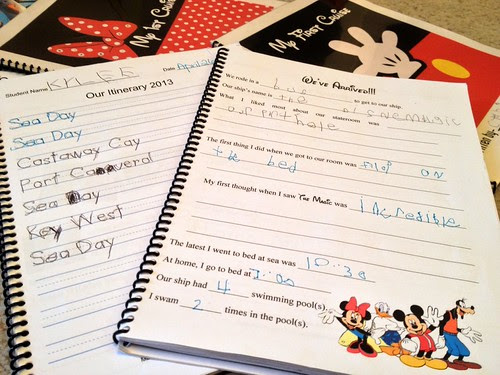 My 1st Cruise
My First Cruise
Student Name KYLEE
Date April 20
Our Itinerary 2013
Sea Day
Sea Day
Castaway Cay
Port Canaveral
Sea Day
Key West
Sea Day
We've Arrived!!!
We rode in a bus to get to our ship.
Our ship's name is the Disney Magic
What I liked most about our stateroom was
our port hole
The first thing I did when we got to our room was flop on
the bed
My first thought when I saw The Magic was Incredible
The latest I went to bed at sea was 10:30
At home, I go to bed at 7:00
Our ship had 4 swimming pool(s).
I swam 2 times in the pool(s).